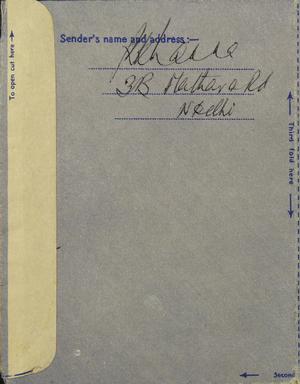 To open cut here
Sender's name and address:—
3B Mathura Rd
N Delhi
Third fold here
Second